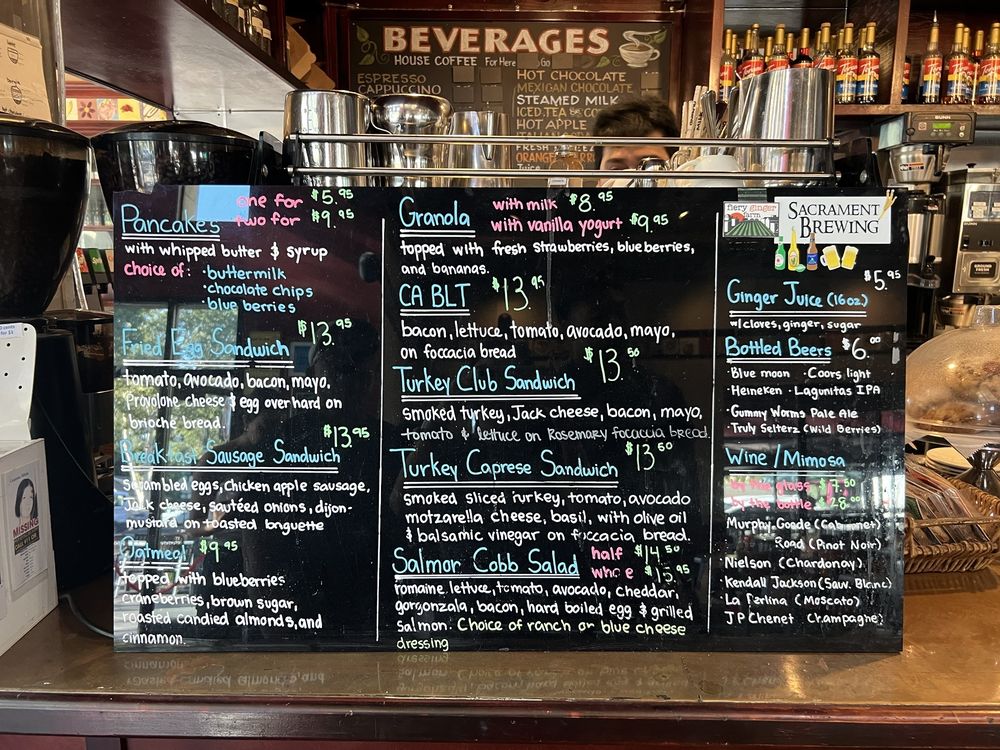 BEVERAGES
HOUSE COFFEE For Here To Go
ESPRESSO
CAPPUCCINO
HOT CHOCOLATE
MEXICAN CHOCOLATE
STEAMED MILK
ICED TEA &
HOT APPLE
Pancakes
one for $5.95
two for $9.95
with whipped butter & syrup
choice of: ·buttermilk
·chocolate chips
·blue berries
Fried Egg Sandwich $13.95
tomato, avocado, bacon, mayo,
Provolone cheese & egg over hard on
brioche bread.
Breakfast Sausage Sandwich $13.95
Scrambled eggs, Chicken apple sausage,
Jack cheese, sautéed onions, dijon-
mustard on toasted baguette
Oatmeal $9.95
topped with blueberries
craneberries, brown sugar,
roasted candied almonds, and
cinnamon.
Granola
with milk $8.95
with vanilla yogurt $9.95
topped with fresh strawberries, blueberries,
and bananas.
CA BLT $13.95
bacon, lettuce, tomato, avocado, mayo,
on foccacia bread
Turkey Club Sandwich $13.50
smoked turkey, Jack cheese, bacon, mayo,
tomato & lettuce on Rosemary focaccia bread.
Turkey Caprese Sandwich $13.50
smoked sliced turkey, tomato, avocado
motzarella cheese, basil, with olive oil
& balsamic vinegar on foccacia bread.
Salmon Cobb Salad
half $14.50
whole
romaine lettuce, tomato, avocado, cheddar,
gorgonzala, bacon, hard boiled egg & grilled
Salmon. Choice of ranch or blue cheese
dressing
fiery ginger
farm
SACRAMENTO
BREWING
$5.95
Ginger Juice (16oz)
w/cloves, ginger, sugar
Bottled Beers $6.00
·Blue moon ·Coors light
·Heineken ·Lagunitas IPA
·Gummy Worms Pale Ale
·Truly Selterz (Wild Berries)
Wine/Mimosa
by the glass $7.50
by the bottle
Murphy Goode (Cabernet)
Road (Pinot Noir)
Nielson (Chardonay)
Kendall Jackson (Sauv. Blanc)
La Perlina (Moscato)
JP Chenet (Champagne)
MISSING
BUNN